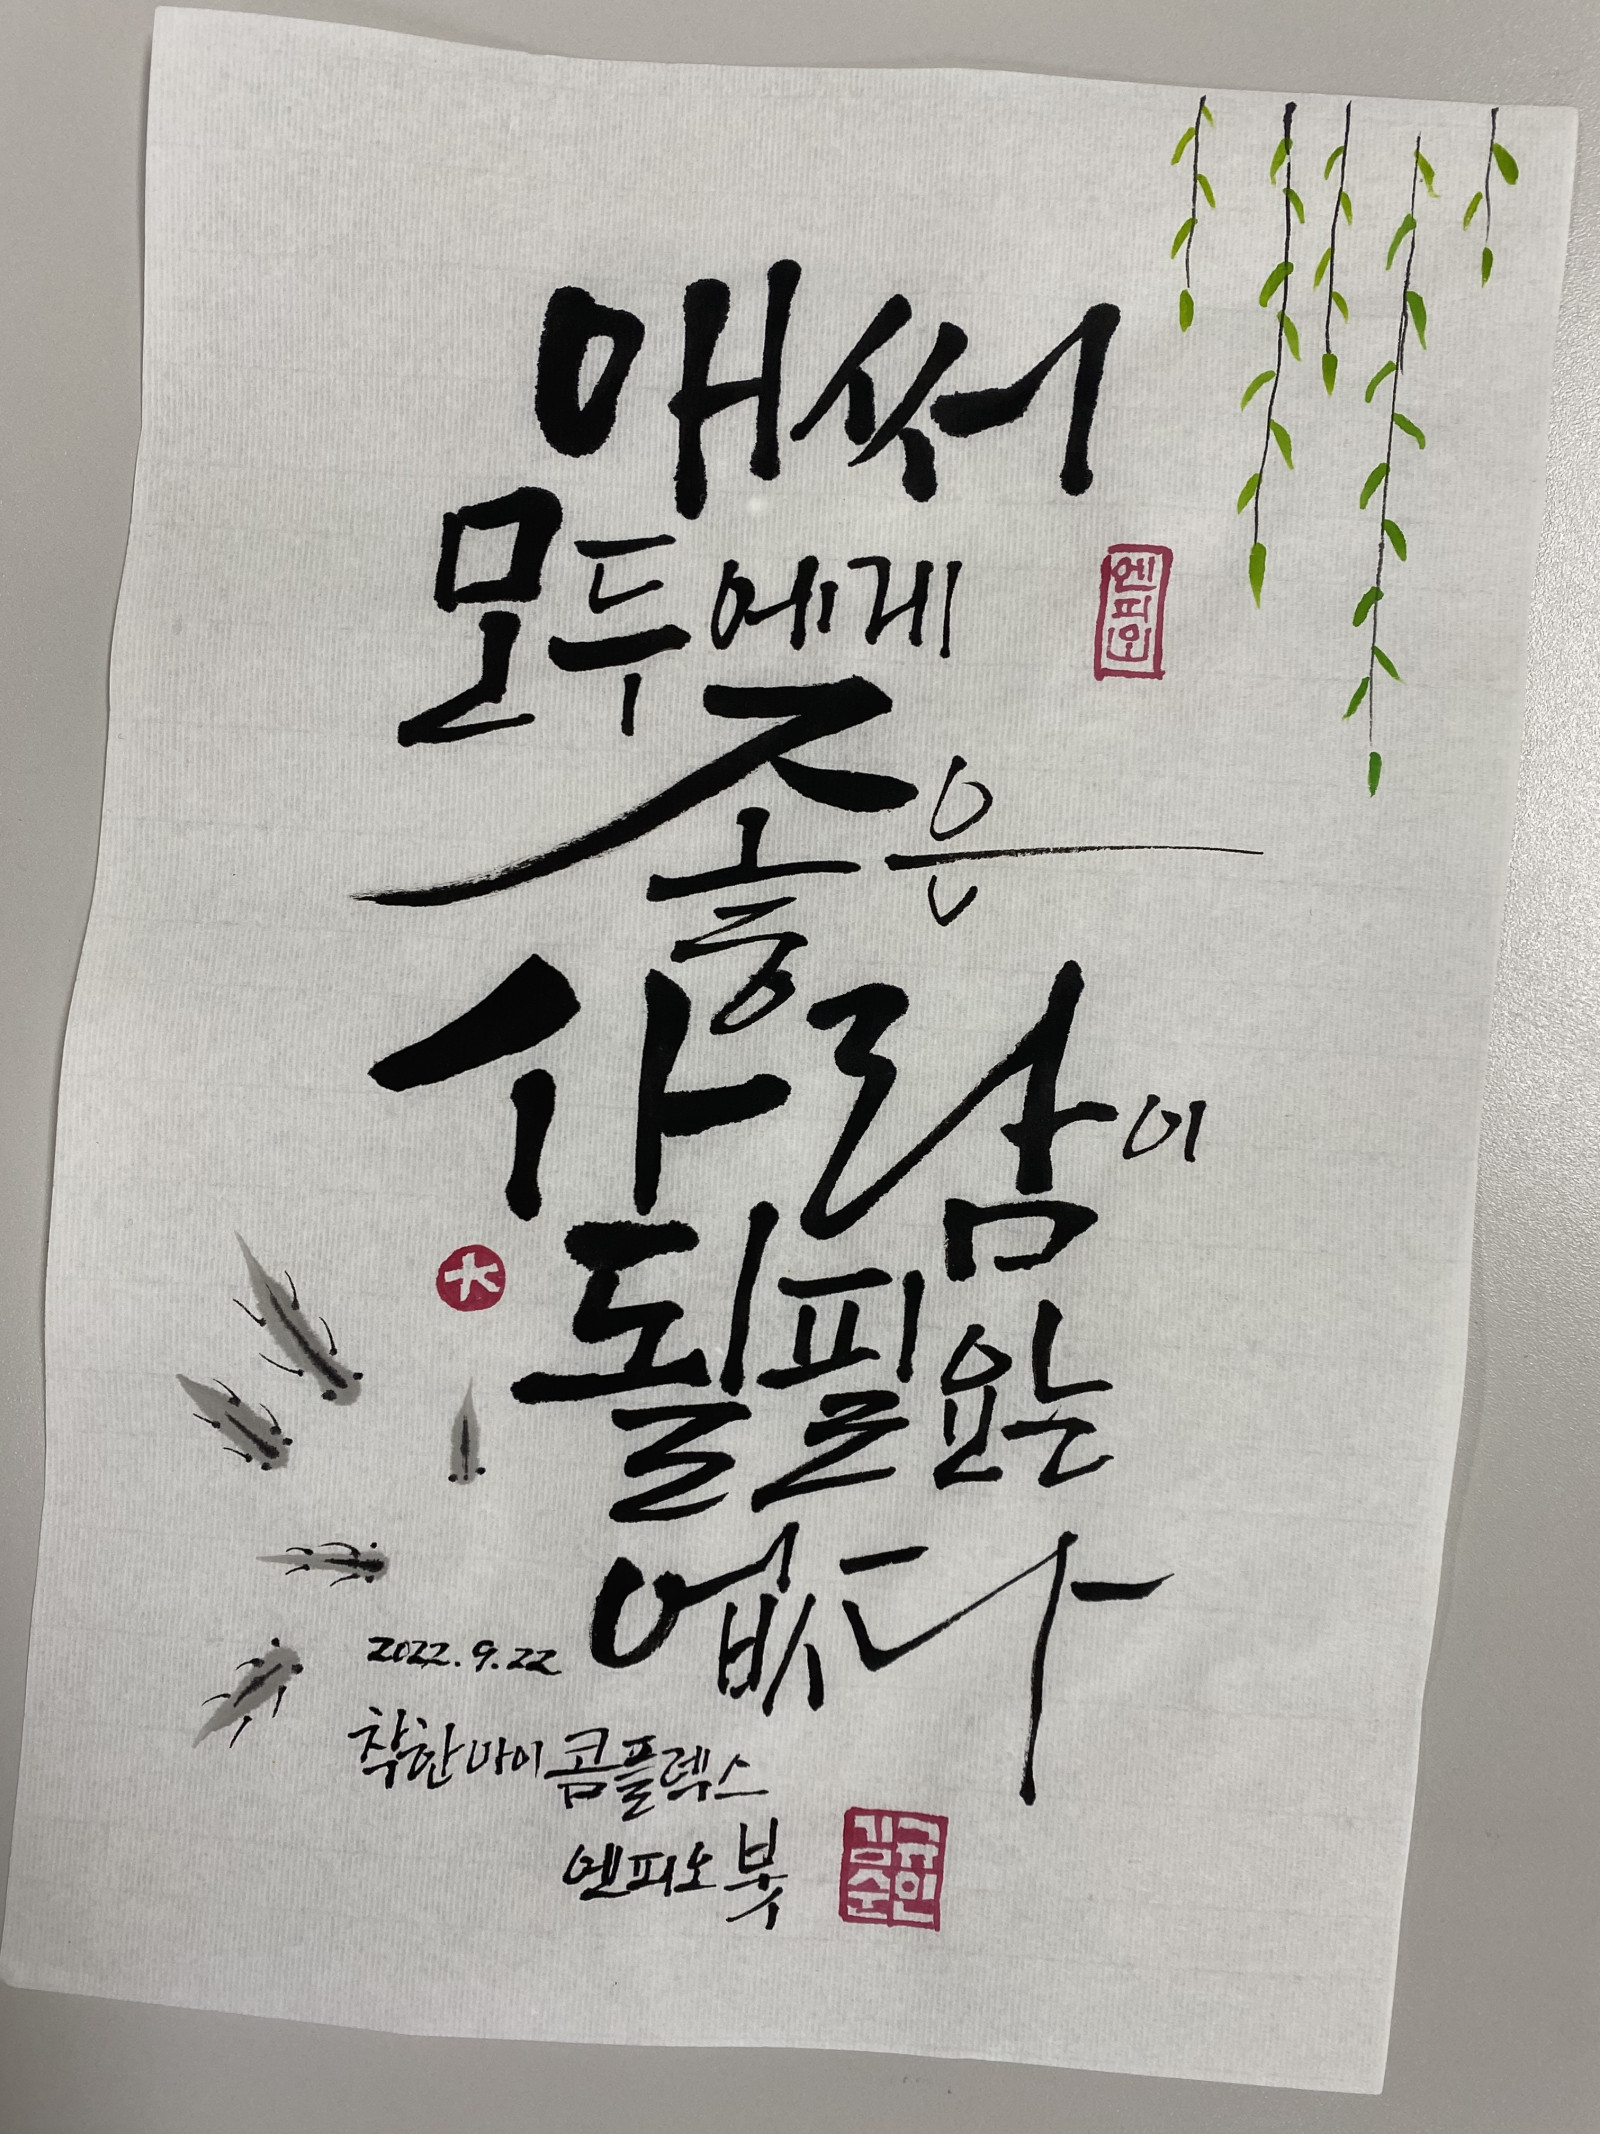 애써
모두에게
엔피오
좋은
사람이
될 필요는
없다
2022.9.22
착한아이 콤플렉스
엔피오 붓